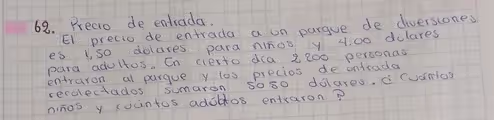 62. Precio de entrada.
El precio de entrada a un parque de diversiones
es 1,50 dólares para niños y 4.00 dolares
para adultos. En cierto día 2 200 personas
entraron al parque y los precios de entrada
recolectados sumaron 5050 dólares. ¿ Cuántos
niños y cuántos adultos entraron ?